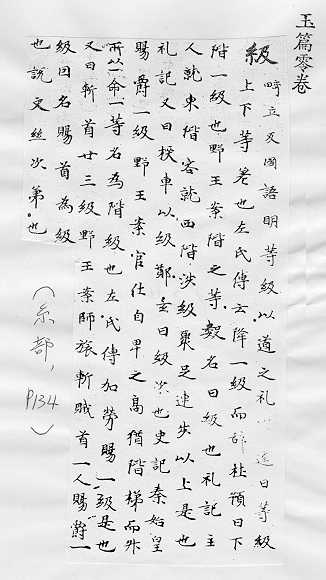 玉篇零卷
級 畸立反國語明等級以道之礼逵曰等級
上下等差也左氏傳云降一級而辞杜預曰下
階一級也野王案階之等數名曰級也礼記主
人就東階客就西階涉級聚足連步以上是也
礼記又曰授車以級鄭玄曰級次也史記秦始皇
賜爵一級野王案官仕自卑之高猶階梯而升
所以命一等名為階級也左氏傳加勞賜一級是也
又曰斬首廿三級野王案師旅斬賊首一人賜爵一
級因名賜首為級
也說文絲次第也
（糸部，P134）